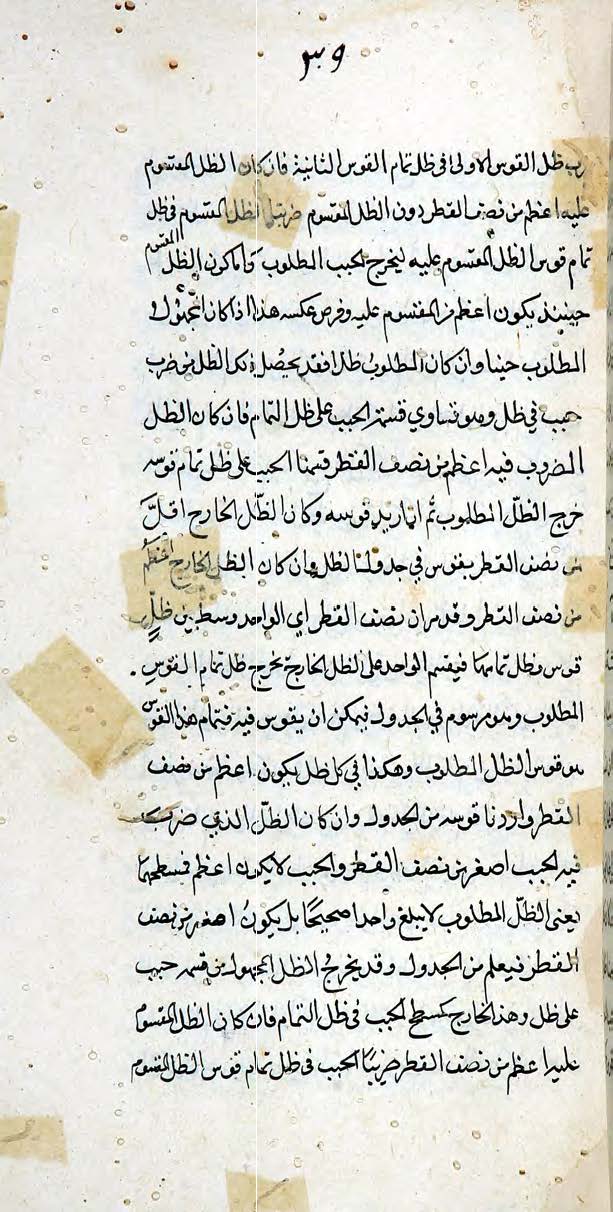 ٣٩
ضرب ظل القوس الاولى في ظل تمام القوس الثانية فان كان الظل المقسوم
عليه اعظم من نصف القطر دون الظل المقسوم ضربنا الظل المقسوم في ظل
تمام قوس الظل المقسوم عليه ليخرج الجيب المطلوب واما كون الظل المقسوم
حينيذ يكون اعظم من المقسوم عليه وفرض عكسه هذا اذا كان المجهول
المطلوب جيبا وان كان المطلوب ظلا فقد يحصل ذلك الظل من ضرب
جيب في ظل وهو تساوي قسمة الجيب على ظل التمام فان كان الظل
المضروب فيه اعظم من نصف القطر قسمنا الجيب على ظل تمام قوسه
خرج الظل المطلوب ثم ان اريد قوسه وكان الظل الخارج اقل
من نصف القطر يقوس في جدول الظل وان كان الظل الخارج اعظم
من نصف القطر وقد مر ان نصف القطر اي الواحد وسط بين ظل
قوس وظل تمامها فيقسم الواحد على الظل الخارج يخرج ظل تمام القوس .
المطلوب وهو مرسوم في الجدول فيمكن ان يقوس فيه فتمام هذا القوس
هو قوس الظل المطلوب وهكذا في كل ظل يكون اعظم من نصف
القطر واردنا قوسه من الجدول وان كان الظل الذي ضرب
فيه الجيب اصغر من نصف القطر والجيب لا يكون اعظم فمسطحهما
يعني الظل المطلوب لا يبلغ واحدا صحيحا بل يكون اصغر من نصف
القطر فيعلم من الجدول وقد يخرج الظل المجهول من قسمة جيب
على ظل وهذا الخارج كسطح الجيب في ظل التمام فان كان الظل المقسوم
عليه اعظم من نصف القطر ضربنا الجيب في ظل تمام قوس الظل المقسوم